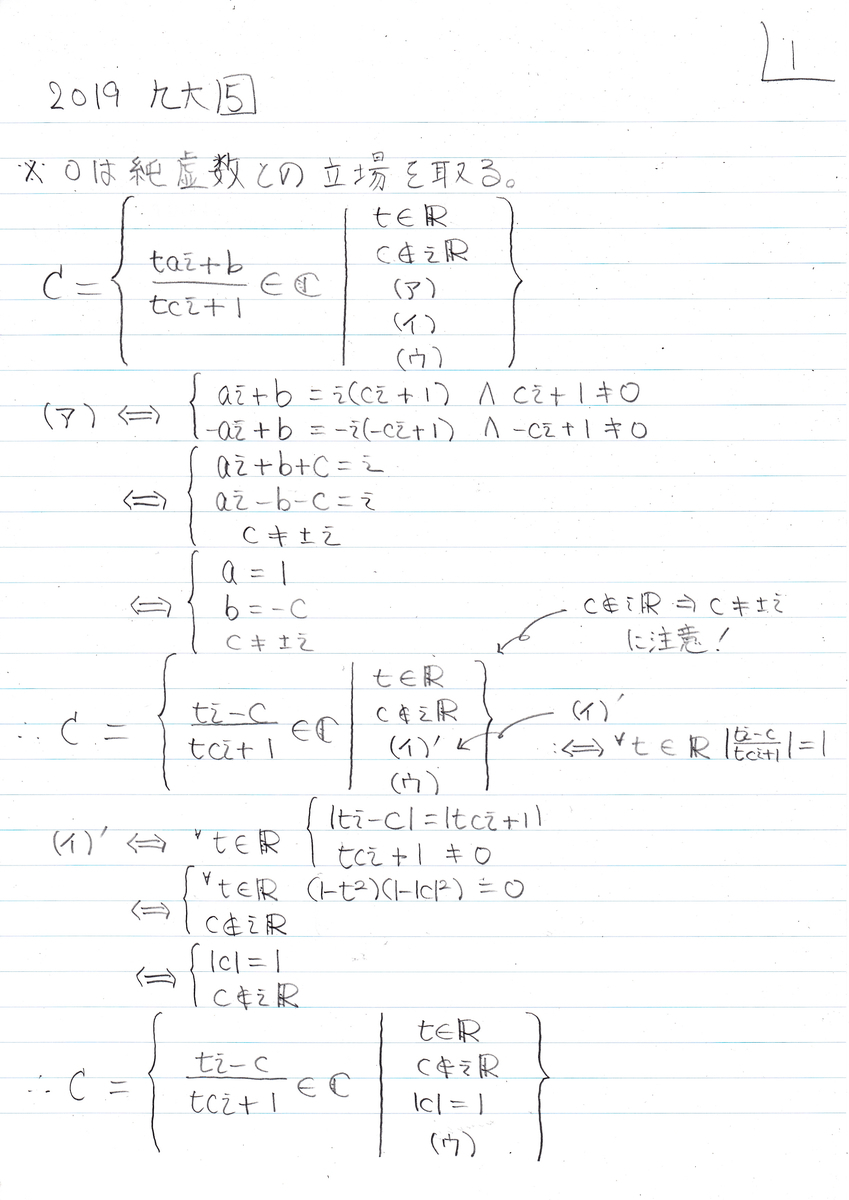 1
2019 九大 5
※ 0は純虚数との立場を取る。
C = { (tai+b)/(tci+1) ∈ ℂ | t∈ℝ
c∉iℝ
(ア)
(イ)
(ウ) }
(ア) ⇔ { ai+b = i(ci+1) ∧ ci+1≠0
-ai+b = -i(-ci+1) ∧ -ci+1≠0
⇔ { ai+b+c=i
ai-b-c=i
c≠±i
⇔ { a=1
b=-c
c≠±i
c∉iℝ ⇒ c≠±i
に注意!
∴ C = { (ti-c)/(tci+1) ∈ℂ | t∈ℝ
c∉iℝ
(イ)'
(ウ) }
(イ)'
:⇔ ∀t∈ℝ |(ti-c)/(tci+1)|=1
(イ)' ⇔ ∀t∈ℝ { |ti-c|=|tci+1|
tci+1≠0
⇔ { ∀t∈ℝ (1-t²)(1-|c|²)=0
c∉iℝ
⇔ { |c|=1
c∉iℝ
∴ C = { (ti-c)/(tci+1) ∈ ℂ | t∈ℝ
c∉iℝ
|c|=1
(ウ) }